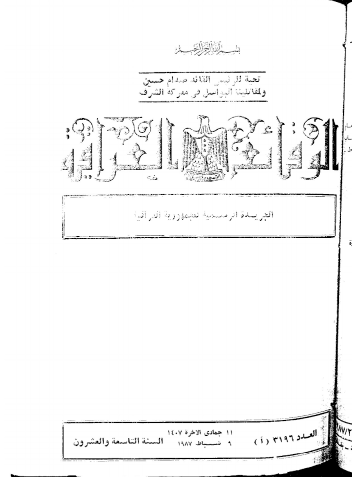 بسم الله الرحمن الرحيم
تحية للرئيس القائد صدام حسين
ولمقاتلينا البواسل في معركة الشرف
الوقائع العراقية
الجريدة الرسمية لجمهورية العراق
العدد ٣١٩٦ ( أ )
١١ جمادى الآخرة ١٤٠٧
٦ شباط ١٩٨٧
السنة التاسعة والعشرون